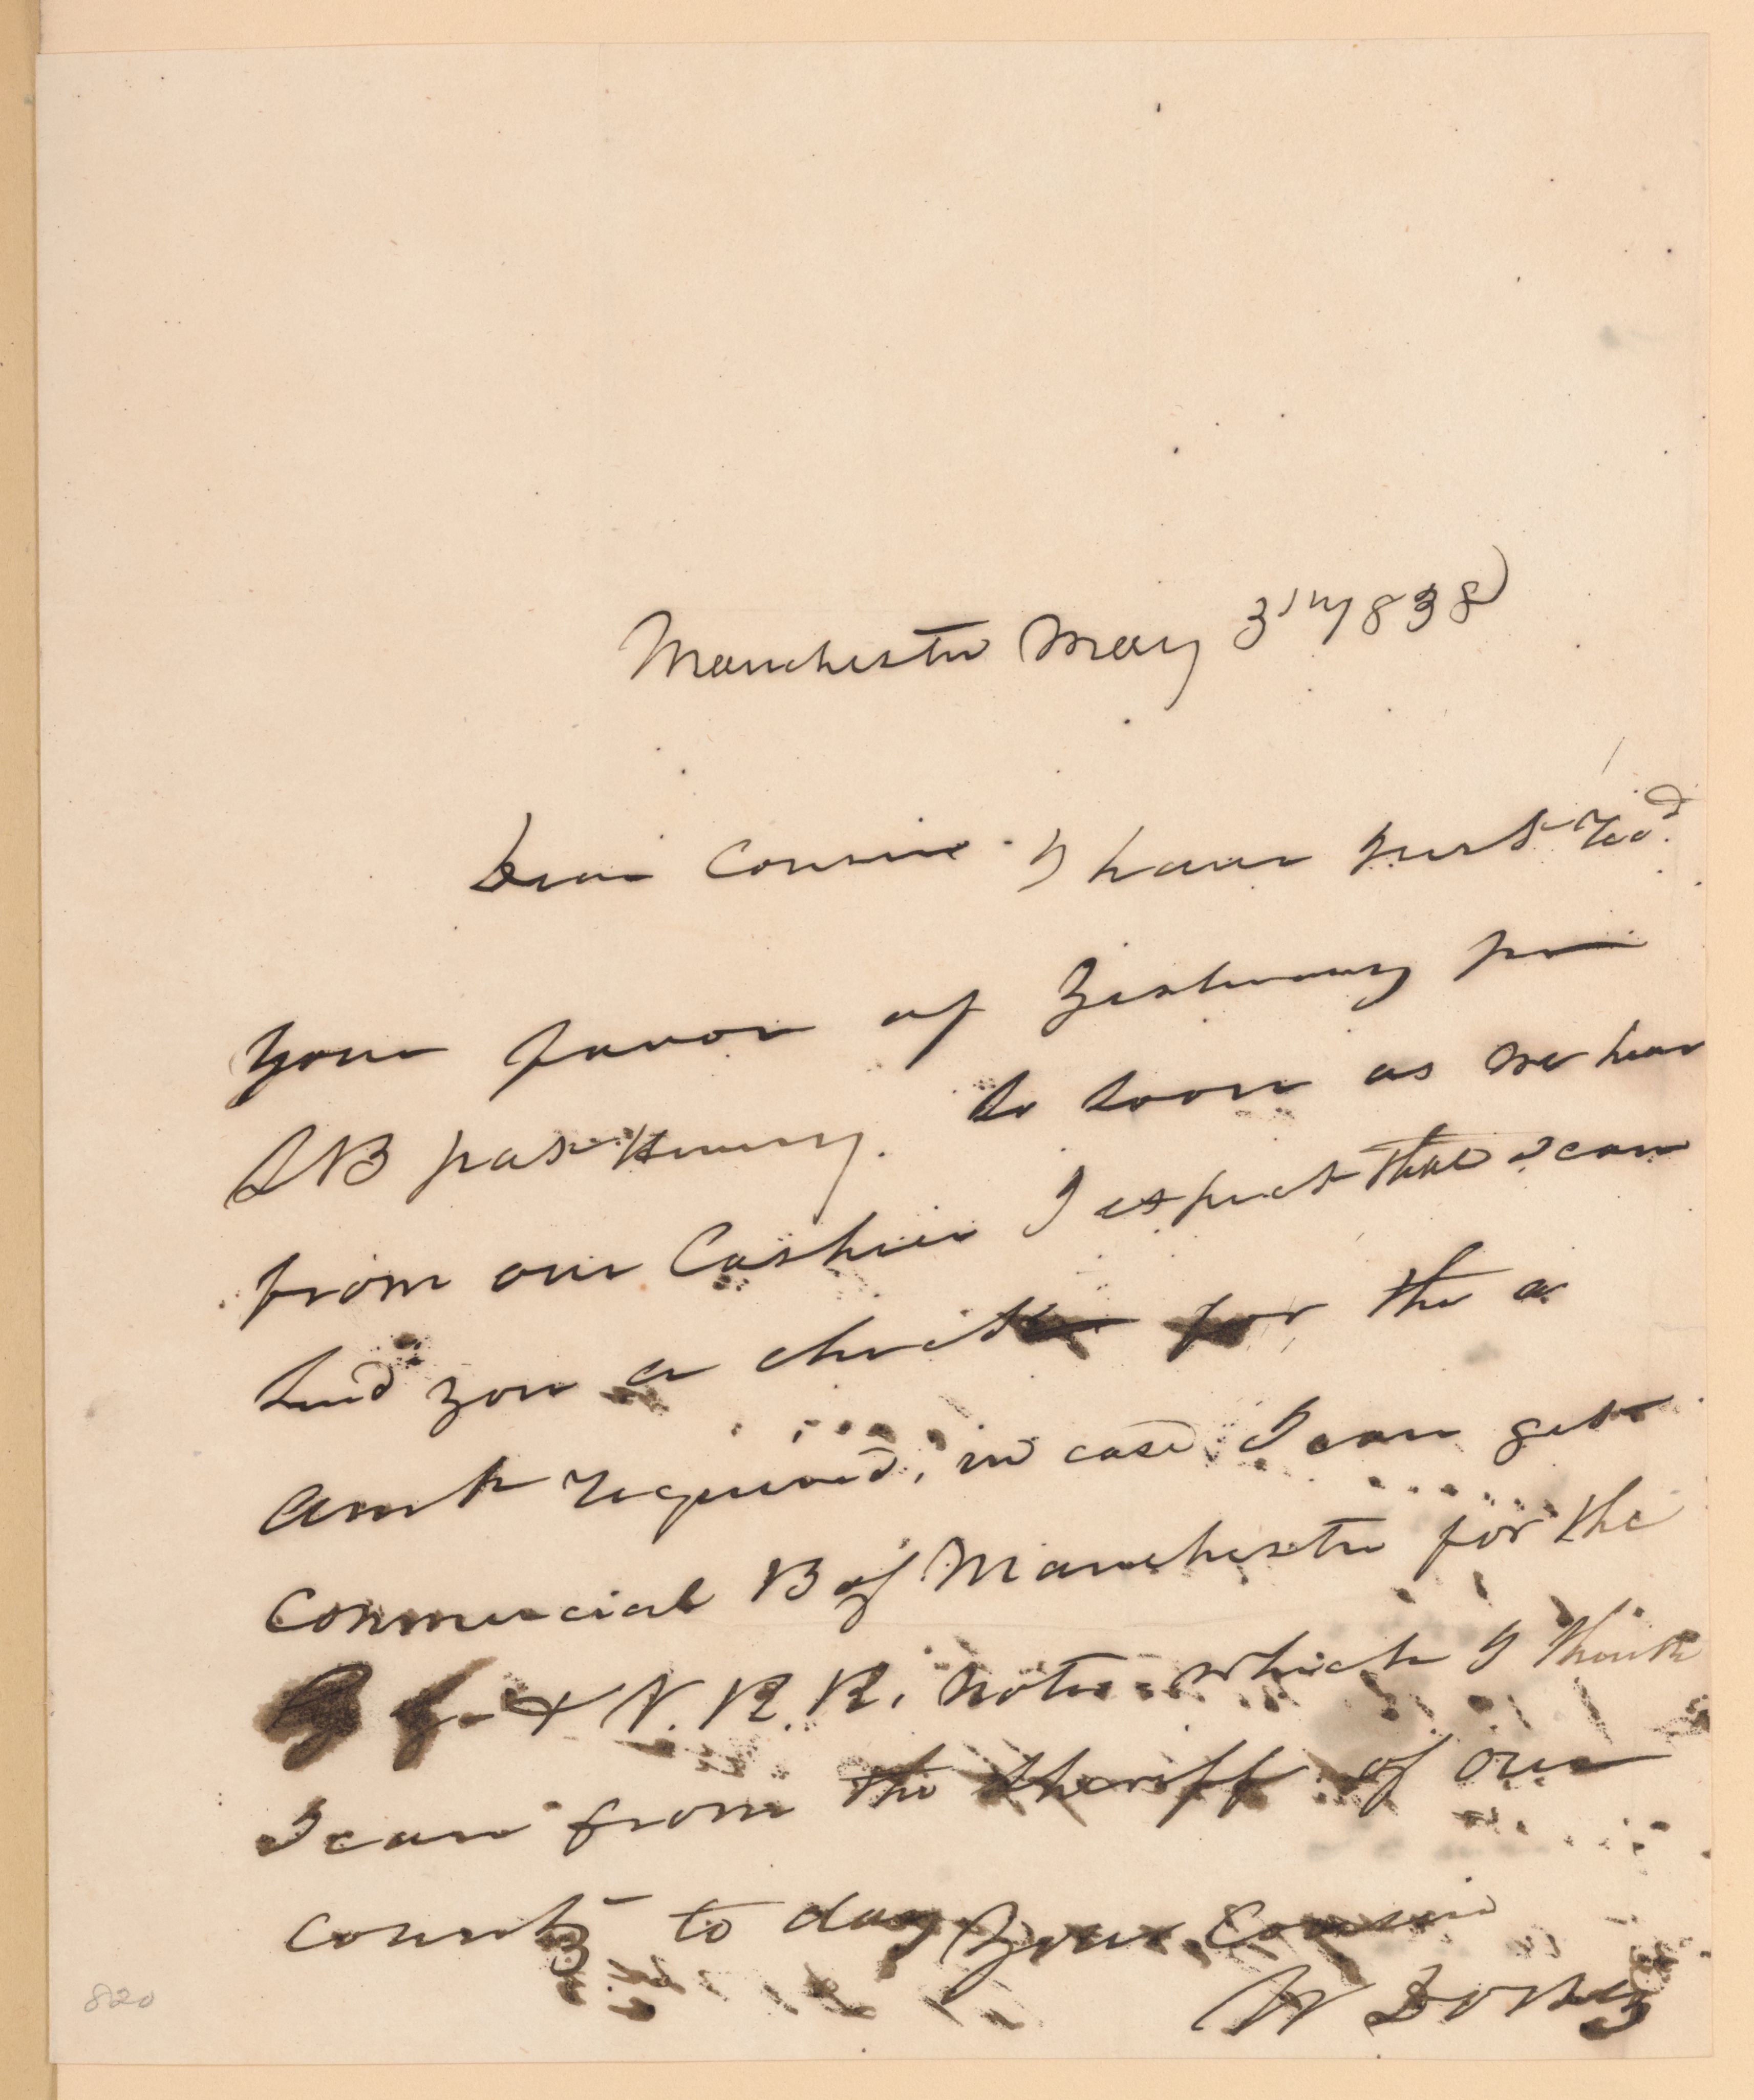 Manchester May 31st 1838
Dear Cousin I have just recd.
your favor of Yesterday pr
as soon as we hear
from our Cashier I expect that I can
send you a check for the a
amt required, in case I can get
Commercial B of Manchester for the
& N. R. R. notes which I think
I can from the Sheriff of our
County to day Your Cousin
W Dorsey
820